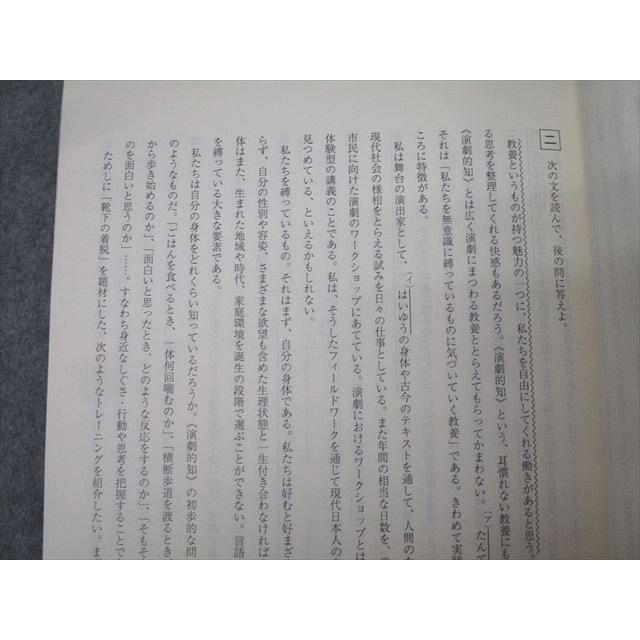 二 次の文を読んで、後の問に答えよ。
教養というものが持つ魅力の一つに、私たちを自由にしてくれる働きがあると思う。
る思考を整理してくれる快感もあるだろう。《演劇的知》という、耳慣れない教養にも
《演劇的知》とは広く演劇にまつわる教養ととらえてもらってかまわない。(ア)たんて
それは「私たちを無意識に縛っているものに気づいていく教養」である。きわめて実践
ころに特徴がある。
私は舞台の演出家として、(イ)はいゆうの身体や古今のテキストを通して、人間の
現代社会の様相をとらえる試みを日々の仕事としている。また年間の相当な日数を、
市民に向けた演劇のワークショップにあてている。演劇におけるワークショップとは
体験型の講義のことである。私は、そうしたフィールドワークを通じて現代日本人の
見つめている、といえるかもしれない。
私たちを縛っているもの。それはまず、自分の身体である。私たちは好むと好まざ
らず、自分の性別や容姿、さまざまな欲望も含めた生理状態と一生付き合わなければ
体はまた、生まれた地域や時代、家庭環境を誕生の段階で選ぶことができない。言語
を縛っている大きな要素である。
私たちは自分の身体をどれくらい知っているだろうか。《演劇的知》の初歩的な問
のようなものだ。「ごはんを食べるとき、一体何回噛むのか」、「横断歩道を渡るとき、
から歩き始めるのか」、「面白いと思ったとき、どのような反応をするのか」、「そもそ
のを面白いと思うのか」……。すなわち身近なしぐさ・行動や思考を把握することで
ために「靴下の着脱」を題材にした、次のようなトレーニングを紹介したい。ま